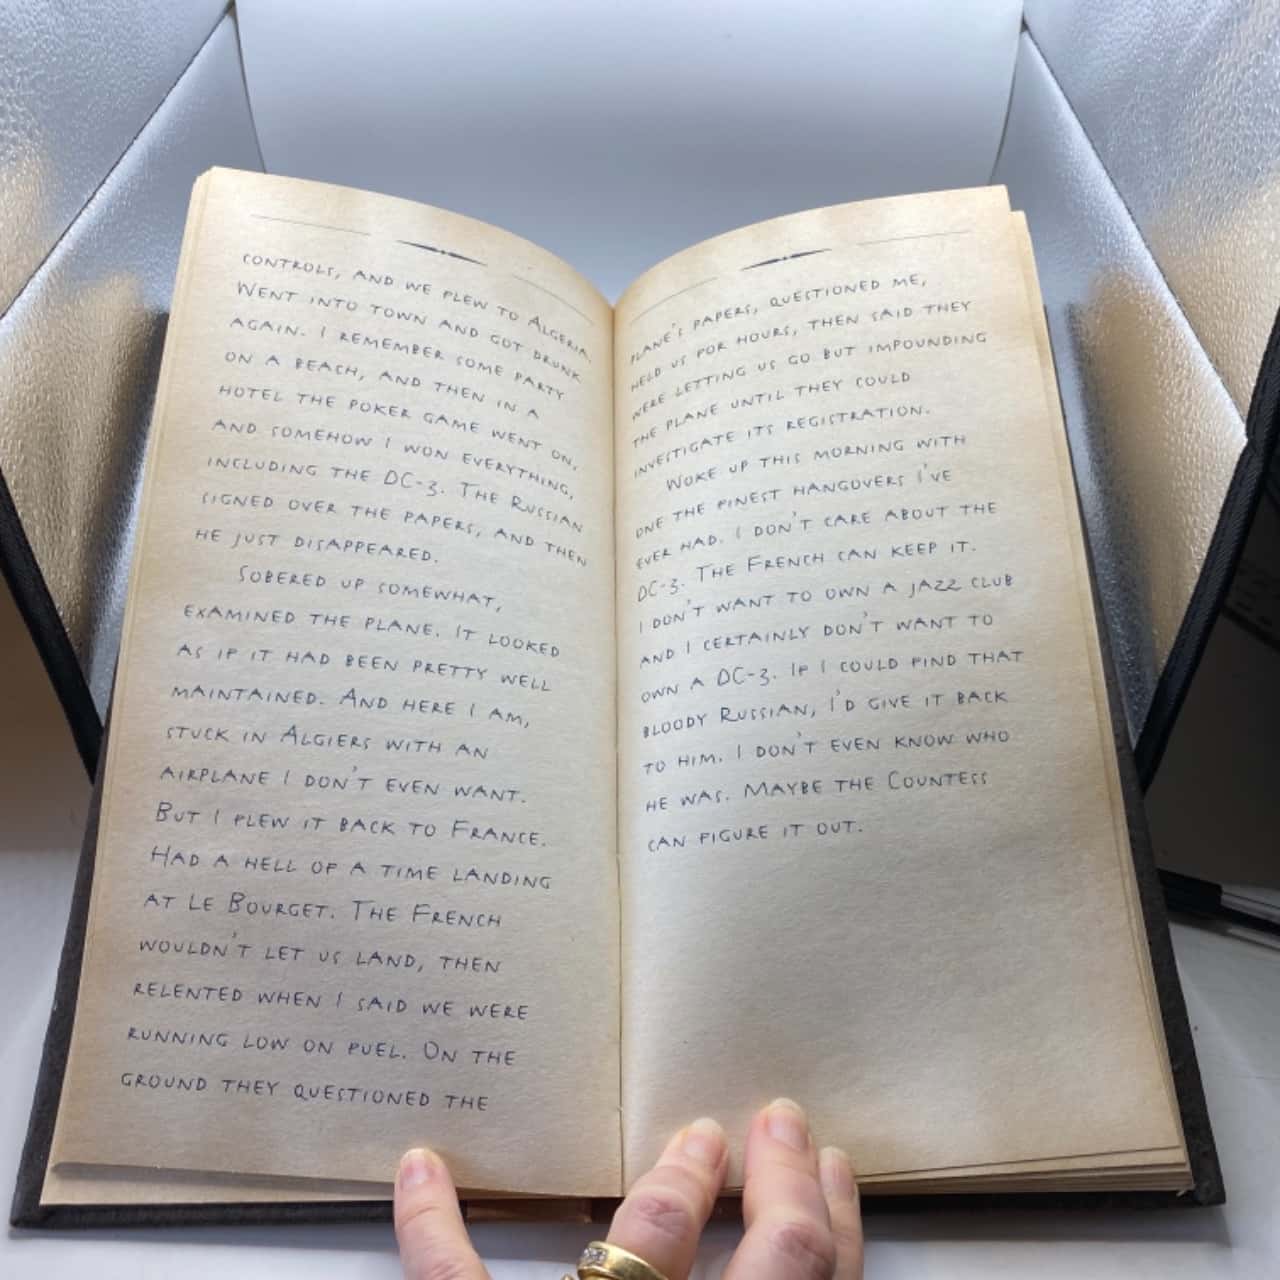 CONTROLS, AND WE FLEW TO ALGERIA.
WENT INTO TOWN AND GOT DRUNK
AGAIN. I REMEMBER SOME PARTY
ON A BEACH, AND THEN IN A
HOTEL THE POKER GAME WENT ON,
AND SOMEHOW I WON EVERYTHING,
INCLUDING THE DC-3. THE RUSSIAN
SIGNED OVER THE PAPERS, AND THEN
HE JUST DISAPPEARED.
SOBERED UP SOMEWHAT,
EXAMINED THE PLANE. IT LOOKED
AS IF IT HAD BEEN PRETTY WELL
MAINTAINED. AND HERE I AM,
STUCK IN ALGIERS WITH AN
AIRPLANE I DON'T EVEN WANT.
BUT I FLEW IT BACK TO FRANCE.
HAD A HELL OF A TIME LANDING
AT LE BOURGET. THE FRENCH
WOULDN'T LET US LAND, THEN
RELENTED WHEN I SAID WE WERE
RUNNING LOW ON FUEL. ON THE
GROUND THEY QUESTIONED THE
PLANE'S PAPERS, QUESTIONED ME,
HELD US FOR HOURS, THEN SAID THEY
WERE LETTING US GO BUT IMPOUNDING
THE PLANE UNTIL THEY COULD
INVESTIGATE ITS REGISTRATION.
WOKE UP THIS MORNING WITH
ONE THE FINEST HANGOVERS I'VE
EVER HAD. I DON'T CARE ABOUT THE
DC-3. THE FRENCH CAN KEEP IT.
I DON'T WANT TO OWN A JAZZ CLUB
AND I CERTAINLY DON'T WANT TO
OWN A DC-3. IF I COULD FIND THAT
BLOODY RUSSIAN, I'D GIVE IT BACK
TO HIM. I DON'T EVEN KNOW WHO
HE WAS. MAYBE THE COUNTESS
CAN FIGURE IT OUT.